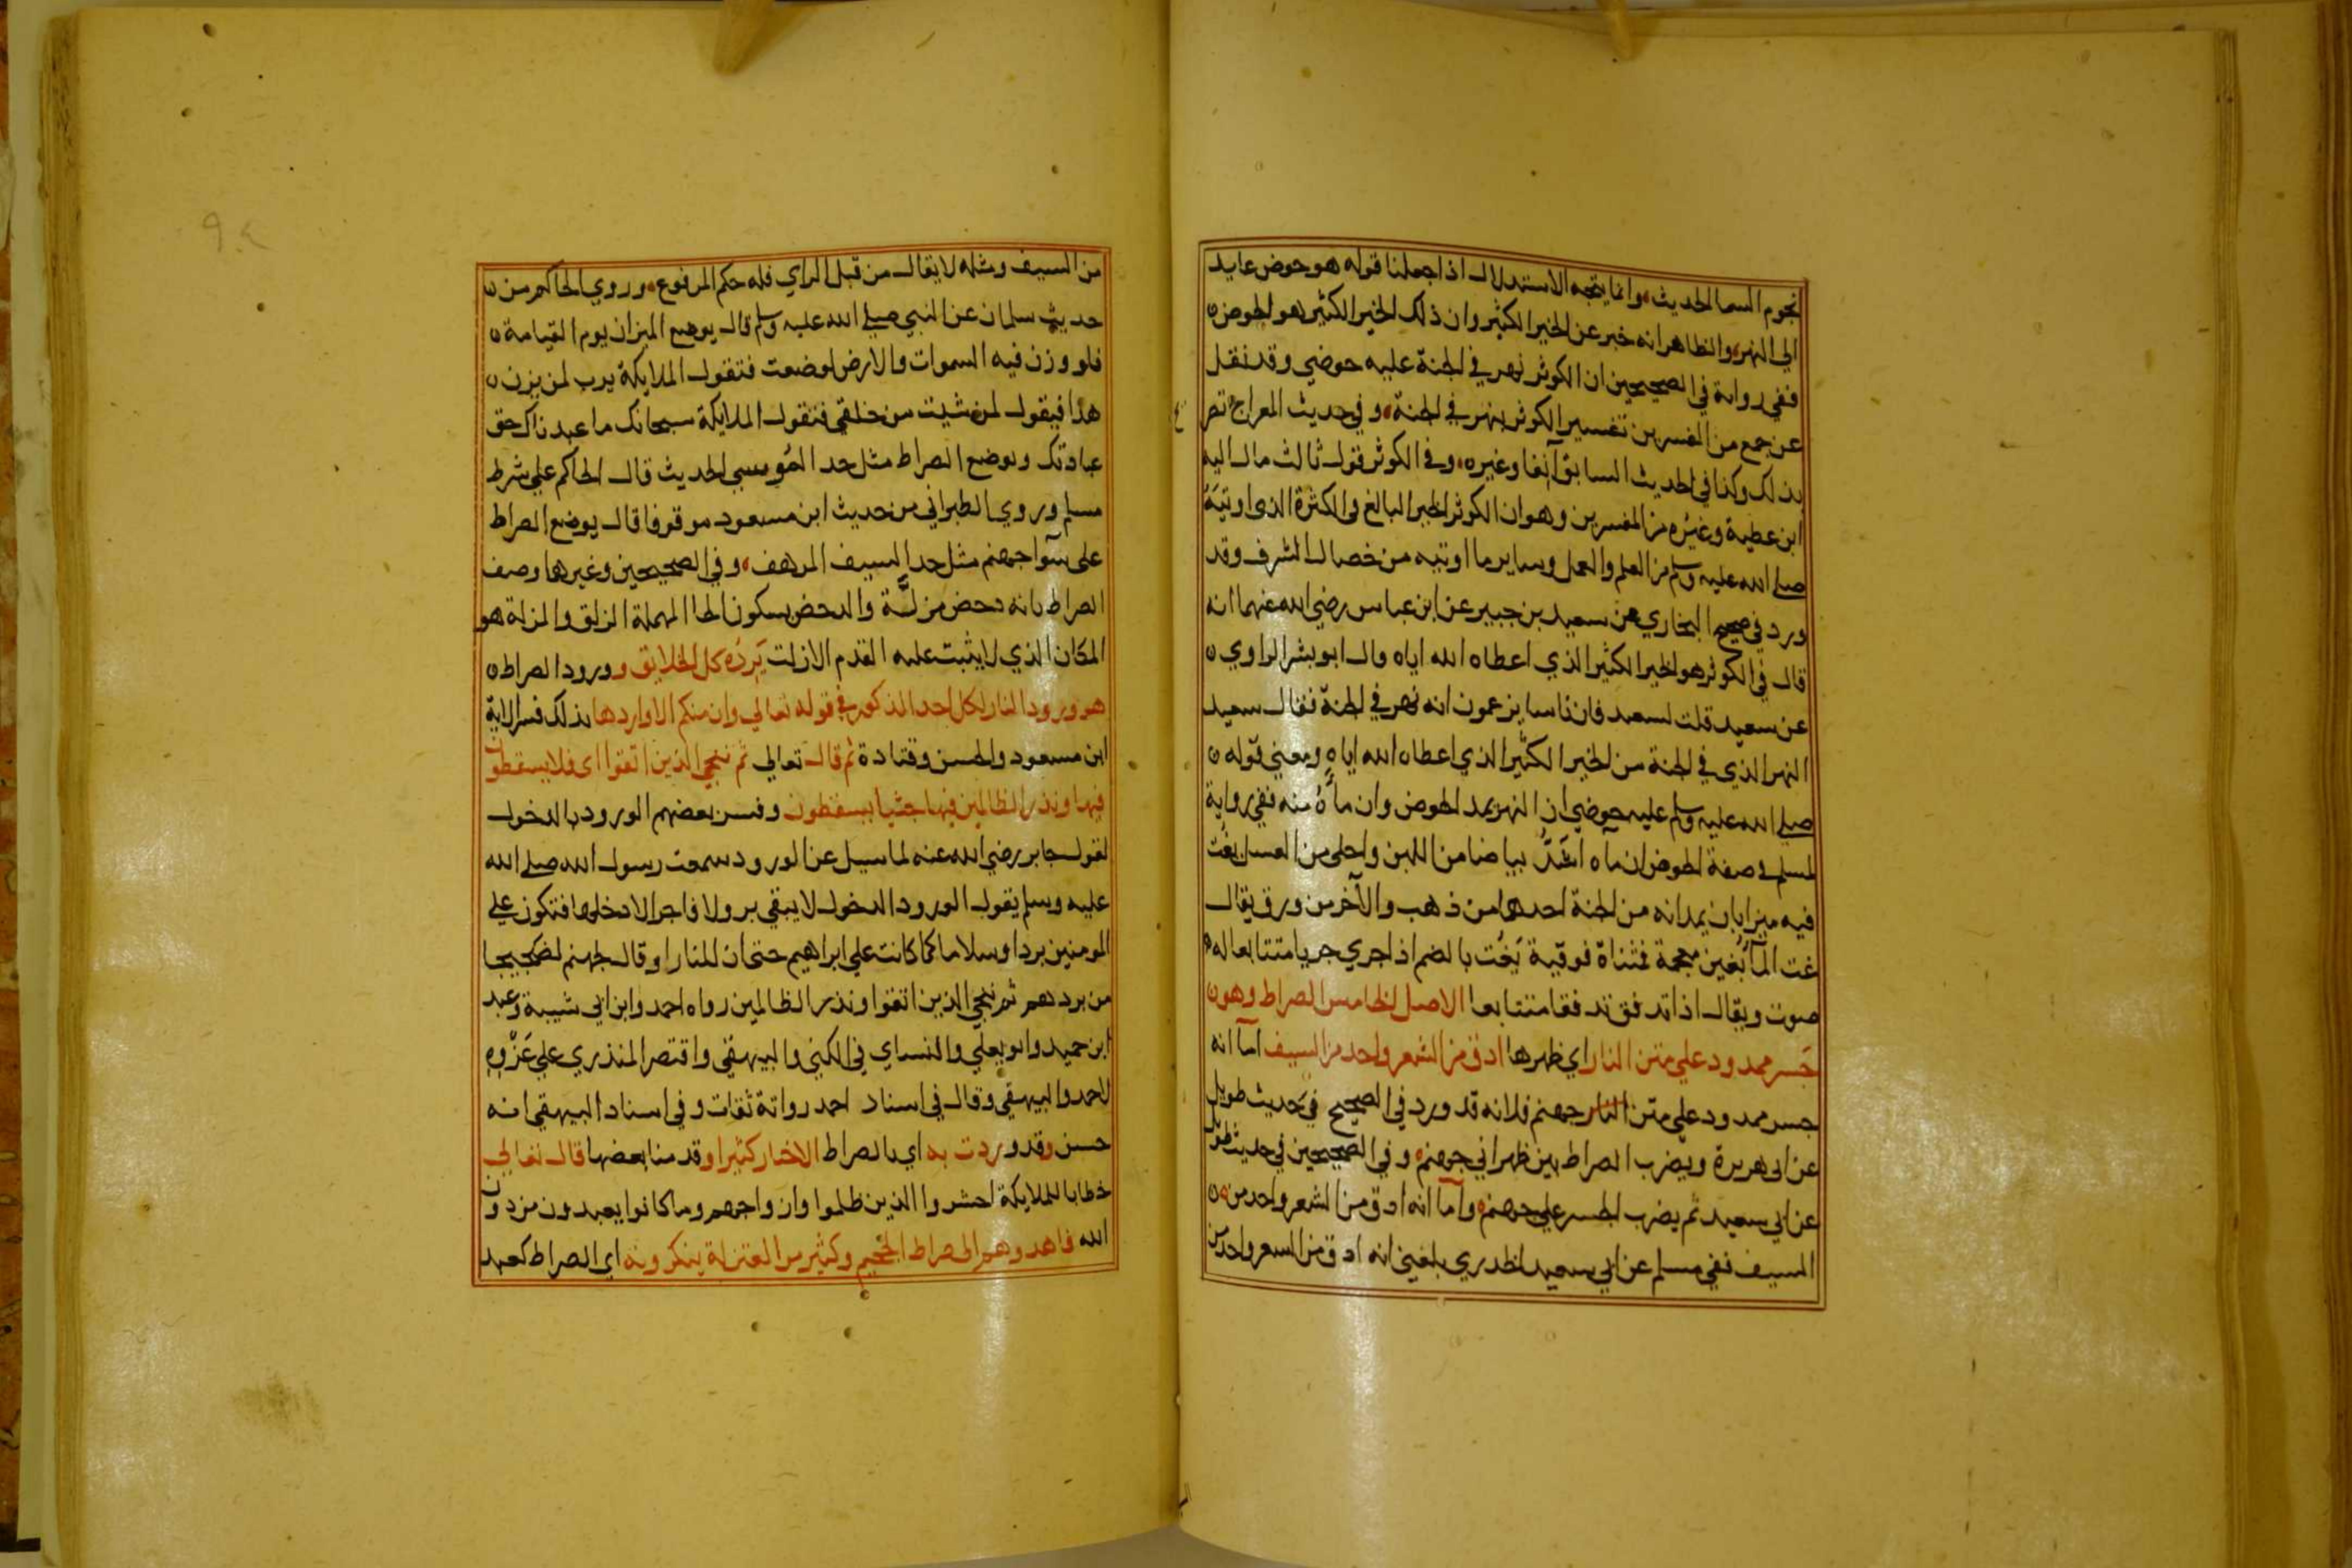 نجوم السما الحديث وانما يتجه الاستدلال اذا جعلنا قوله هو حوض عايد
الى النهر والظاهر انه خبر عن الخير الكثير وان ذلك الخير الكثير هو الحوض
ففي رواية في الصحيحين ان الكوثر نهر في الجنة عليه حوضي وقد نقل
عن جمع من المفسرين تفسير الكوثر بنهر في الجنة وفي حديث المعراج تصر
بذلك وكذا في الحديث السابق آنفا وغيره وفي الكوثر قول ثالث مال اليه
ابن عطية وغيره من المفسرين وهو ان الكوثر الخير البالغ في الكثرة الذي اوتيه
صلى الله عليه وسلم من العلم والعمل وساير ما اوتيه من خصال الشرف وقد
ورد في صحيح البخاري عن سعيد بن جبير عن ابن عباس رضي الله عنهما انه
قال في الكوثر هو الخير الكثير الذي اعطاه الله اياه قال ابو بشر الراوي
عن سعيد قلت لسعيد فان ناسا يزعمون انه نهر في الجنة فقال سعيد
النهر الذي في الجنة من الخير الكثير الذي اعطاه الله اياه ومعني قوله
صلى الله عليه وسلم عليه حوضي ان النهر يمد الحوض وان ماؤه منه ففي رواية
لمسلم في صفة الحوض ان ماه اشد بياضا من اللبن واحلى من العسل يغت
فيه ميزابان يمدانه من الجنة احدهما من ذهب والآخر من ورق يقال
غت الما بغين معجمة فمثناة فوقية يغت بالضم اذا جري جريا متتابعا له
صوت ويقال اذا تدفق تدفقا متتابعا الاصل الخامس الصراط وهو
جسر ممدود علي متن النار اي ظهرها ادق من الشعر واحد من السيف اما انه
جسر ممدود علي متن النار جهنم فلانه قد ورد في الصحيح في حديث طويل
عن ابي هريرة ويضرب الصراط بين ظهراني جهنم وفي الصحيحين في حديث طويل
عن ابي سعيد ثم يضرب الجسر علي جهنم واما انه ادق من الشعر واحد من
السيف ففي مسلم عن ابي سعيد الخدري بلغني انه ادق من الشعر واحد من
من السيف ومثله لا يقال من قبل الراي فله حكم المرفوع وروي الحاكم من
حديث سلمان عن النبي صلى الله عليه وسلم قال يوضع الميزان يوم القيامة
فلو وزن فيه السموات والارض لوضعت فتقول الملايكة يرب لمن يزن
هذا فيقول لمن شيت من خلقي فتقول الملايكة سبحانك ما عبدناك حق
عبادتك ويوضع الصراط مثل حد الموسى الحديث قال الحاكم علي شرط
مسلم وروي الطبراني من حديث ابن مسعود موقوفا قال يوضع الصراط
على سوآ جهنم مثل حد السيف المرهف وفي الصحيحين وغيرها وصف
الصراط بانه دحض مزلة والدحض بسكون الحا المهملة الزلق والمزلة هو
المكان الذي لا يثبت عليه القدم الا زلت يرده كل الخلايق وورود الصراط
هو ورود النار لكل احد المذكور في قوله تعالي وان منكم الا واردها بذلك فسر الاية
ابن مسعود والحسن وقتادة ثم قال تعالي ثم ننجي الذين اتقوا اي فلا يسقطون
فيها ونذر الظالمين فيها جثيا يسقطون وفسر بعضهم الورود بالدخول
لقول جابر رضي الله عنه لما سيل عن الورود سمعت رسول الله صلى الله
عليه وسلم يقول الورود الدخول لا يبقي بر ولا فاجر الا دخلها فتكون علي
المومنين بردا وسلاما كما كانت علي ابراهيم حتى ان للنار او قال لجهنم لضجيجا
من بردهم ثم ننجي الذين اتقوا ونذر الظالمين رواه احمد وابن ابي شيبة وعبد
ابن حميد وابو يعلي والنساي في الكني والبيهقي واقتصر المنذري علي عزوه
لاحمد والبيهقي وقال في اسناد احمد رواتة ثقات وفي اسناد البيهقي انه
حسن وقد وردت به اي بالصراط الاخبار كثيرا وقدمنا بعضها قال تعالي
خطابا للملايكة احشروا الذين ظلموا وازواجهم وما كانوا يعبدون من دون
الله فاهدوهم الى صراط الجحيم وكثير من المعتزلة ينكرونه اي الصراط كعبد